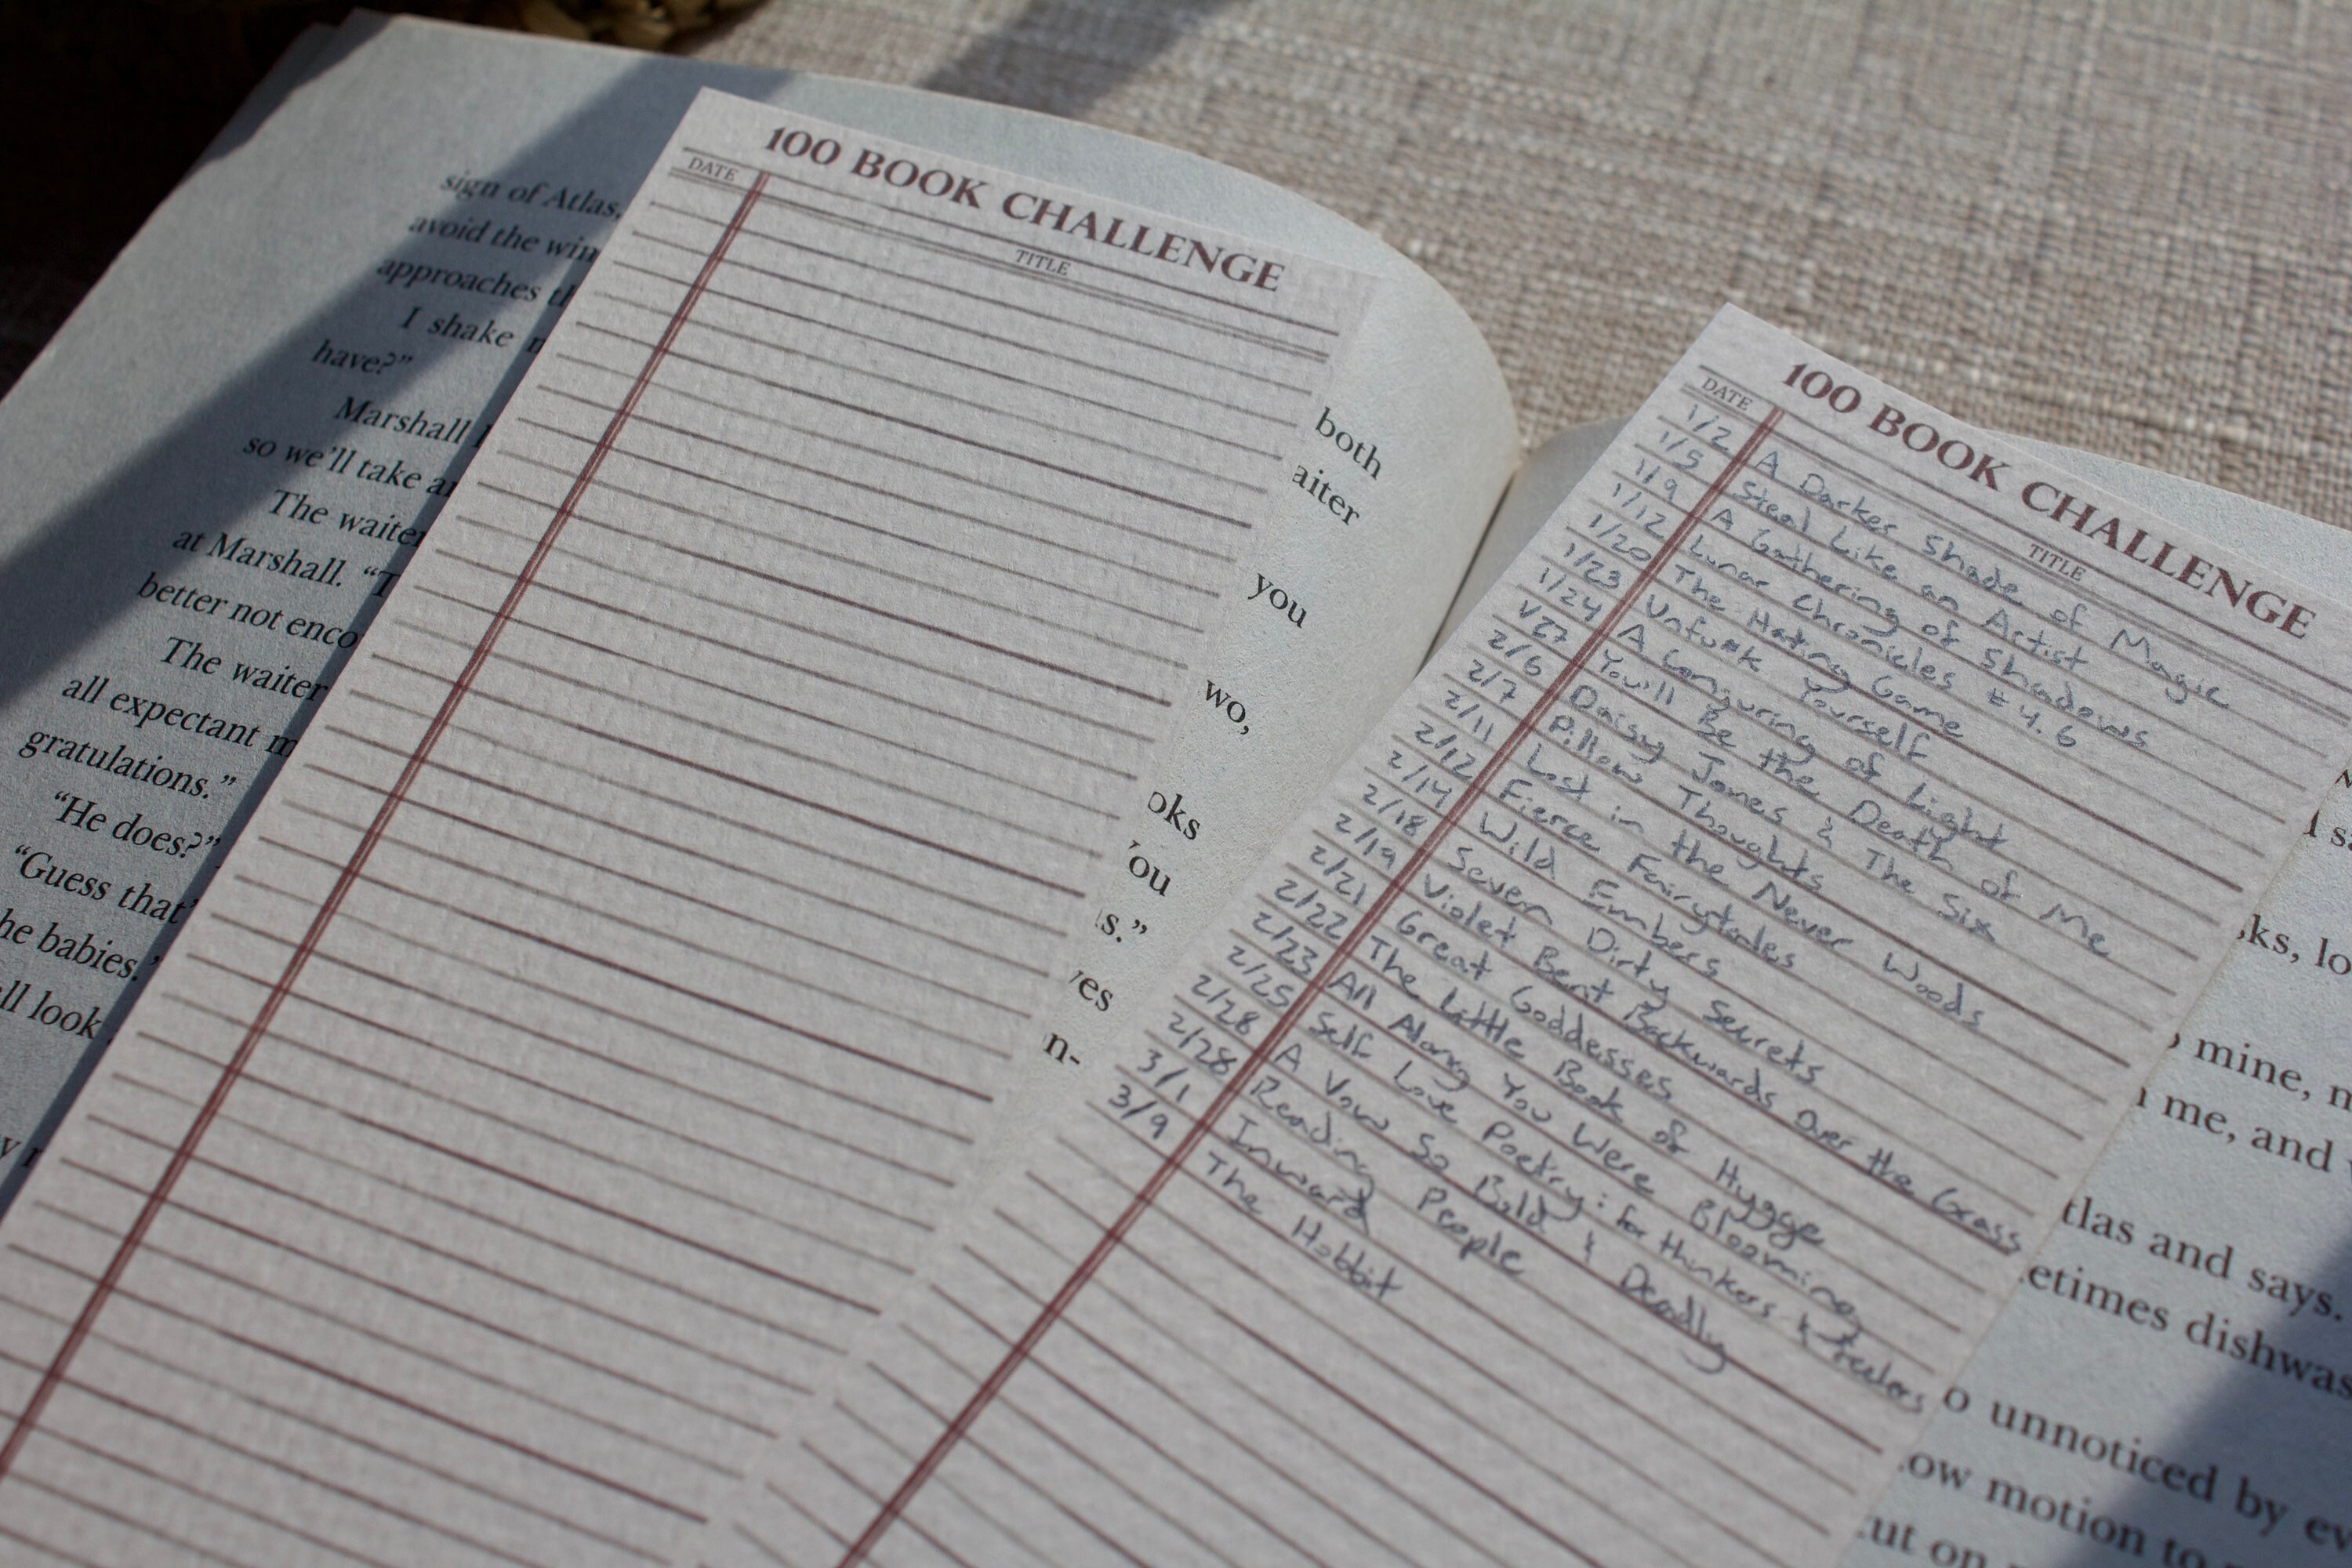 sign of Atlas,
avoid the win
approaches th
I shake
have?”
Marshall
so we’ll take
The waiter
at Marshall. “T
better not enco
The waiter
all expectant m
gratulations.”
“He does?”
“Guess that’
he babies.”
ll look
both
aiter
you
wo,
oks
You
s.”
ves
n-
100 BOOK CHALLENGE
DATE TITLE
100 BOOK CHALLENGE
DATE TITLE
1/2 A Darker Shade of Magic
1/5 Steal Like an Artist
1/9 A Gathering of Shadows
1/12 Lunar Chronicles #4.6
1/20 The Hating Game
1/23 Unfu*k Yourself
1/24 A Conjuring of Light
1/27 You'll Be the Death of Me
2/6 Daisy Jones & The Six
2/7 Pillow Thoughts
2/11 Lost in the Never Woods
2/12 Fierce Fairytales
2/14 Wild Embers
2/18 Seven Dirty Secrets
2/19 Violet Bent Backwards Over the Grass
2/21 Great Goddesses
2/22 The Little Book of Hygge
2/23 All Along You Were Blooming
2/25 Self Love Poetry: for thinkers & feelers
2/28 A Vow So Bold & Deadly
2/28 Reading People
3/1 Inward
3/9 The Hobbit
ks, lo
mine, m
me, and
tlas and says.
etimes dishwas
o unnoticed by ev
ow motion to
ut on